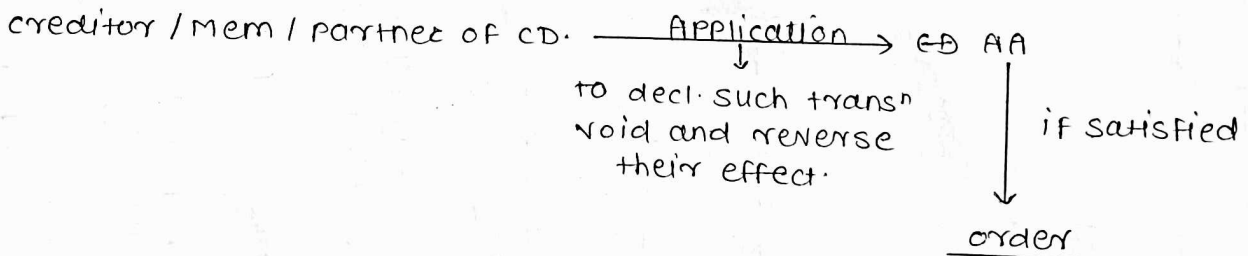 creditor / Mem / Partner of CD. Application → AA
to decl. such transⁿ
void and reverse
their effect.
if satisfied
order